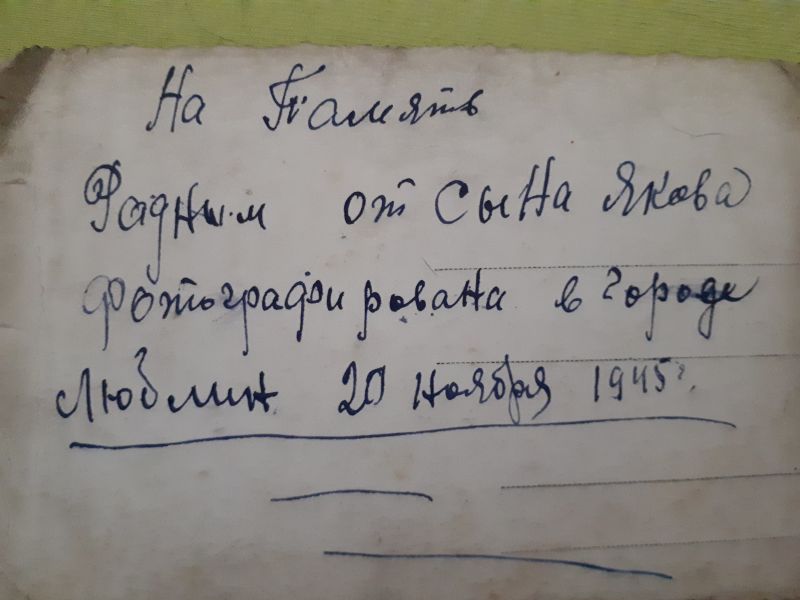 На Память
Радным от Сына Якова
Фотографирована в городе
Люблин 20 ноября 1945г.